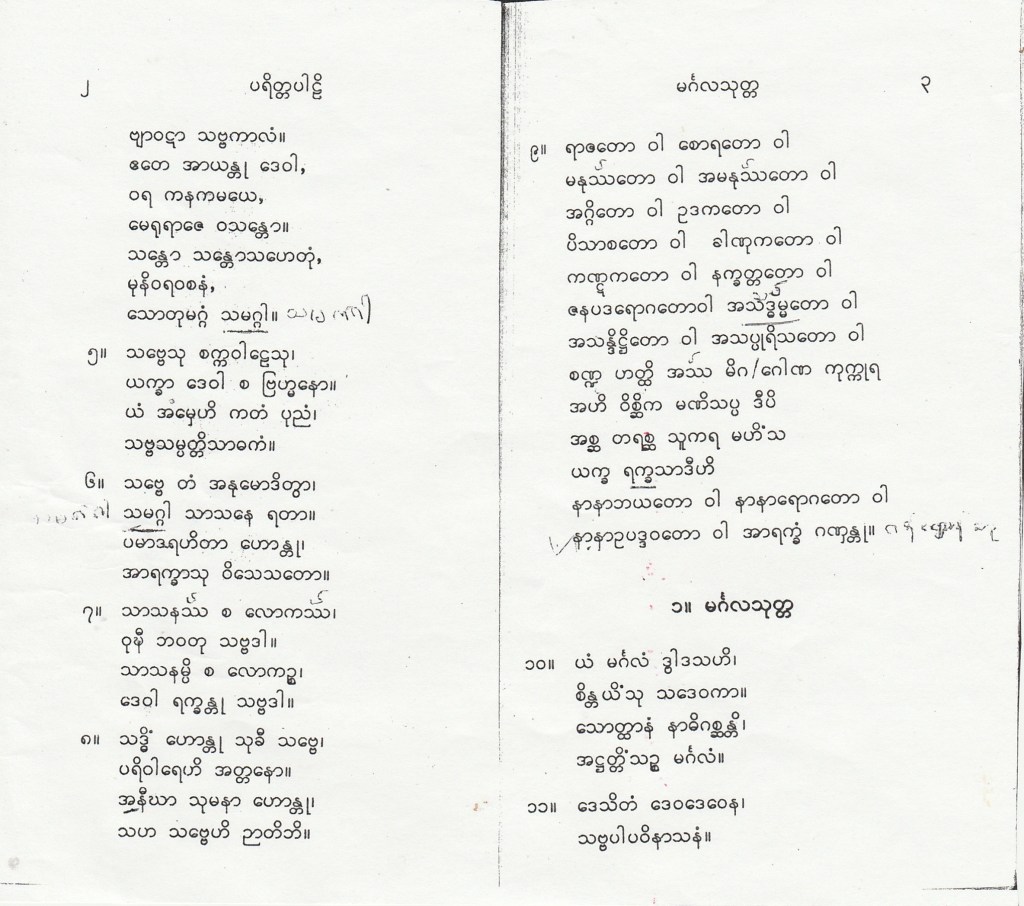 ၂ ပရိတ္တပါဠိ
ဗျာဝဋာ သဗ္ဗကာလံ။
ဧတေ အာယန္တု ဒေဝါ,
ဝရ ကနကမယေ,
မေရုရာဇေ ဝသန္တော။
သန္တော သန္တောသဟေတုံ,
မုနိဝရဝစနံ,
သောတုမဂ္ဂံ သမဂ္ဂါ။
၅။ သဗ္ဗေသု စက္ကဝါဠေသု၊
ယက္ခာ ဒေဝါ စ ဗြဟ္မနော။
ယံ အမှေဟိ ကတံ ပုညံ၊
သဗ္ဗသမ္ပတ္တိသာဓကံ။
၆။ သဗ္ဗေ တံ အနုမောဒိတွာ၊
သမဂ္ဂါ သာသနေ ရတာ။
ပမာဒရဟိတာ ဟောန္တု၊
အာရက္ခာသု ဝိသေသတော။
၇။ သာသနဿ စ လောကဿ၊
ဝုဍ္ဎီ ဘဝတု သဗ္ဗဒါ။
သာသနမ္ပိ စ လောကဉ္စ၊
ဒေဝါ ရက္ခန္တု သဗ္ဗဒါ။
၈။ သဒ္ဓိံ ဟောန္တု သုခီ သဗ္ဗေ၊
ပရိဝါရေဟိ အတ္တနော။
အနီဃာ သုမနာ ဟောန္တု၊
သဟ သဗ္ဗေဟိ ဉာတိဘိ။
မင်္ဂလသုတ္တ ၃
၉။ ရာဇတော ဝါ စောရတော ဝါ
မနုဿတော ဝါ အမနုဿတော ဝါ
အဂ္ဂိတော ဝါ ဥဒကတော ဝါ
ပိသာစတော ဝါ ခါဏုကတော ဝါ
ကဏ္ဋကတော ဝါ နက္ခတ္တတော ဝါ
ဇနပဒရောဂတောဝါ အသဒ္ဓမ္မတော ဝါ
အသန္ဒိဋ္ဌိတော ဝါ အသပ္ပုရိသတော ဝါ
စဏ္ဍ ဟတ္ထိ အဿ မိဂ/ဂေါဏ ကုက္ကုရ
အဟိ ဝိစ္ဆိက မဏိသပ္ပ ဒီပိ
အစ္ဆ တရစ္ဆ သူကရ မဟိံသ
ယက္ခ ရက္ခသာဒီဟိ
နာနာဘယတော ဝါ နာနာရောဂတော ဝါ
နာနာဥပဒ္ဒဝတော ဝါ အာရက္ခံ ဂဏှန္တု။
၁။ မင်္ဂလသုတ္တ
၁၀။ ယံ မင်္ဂလံ ဒွါဒသဟိ၊
စိန္တယိံသု သဒေဝကာ။
သောတ္ထာနံ နာဓိဂစ္ဆန္တိ၊
အဋ္ဌတ္တိံသဉ္စ မင်္ဂလံ။
၁၁။ ဒေသိတံ ဒေဝဒေဝေန၊
သဗ္ဗပါပဝိနာသနံ။